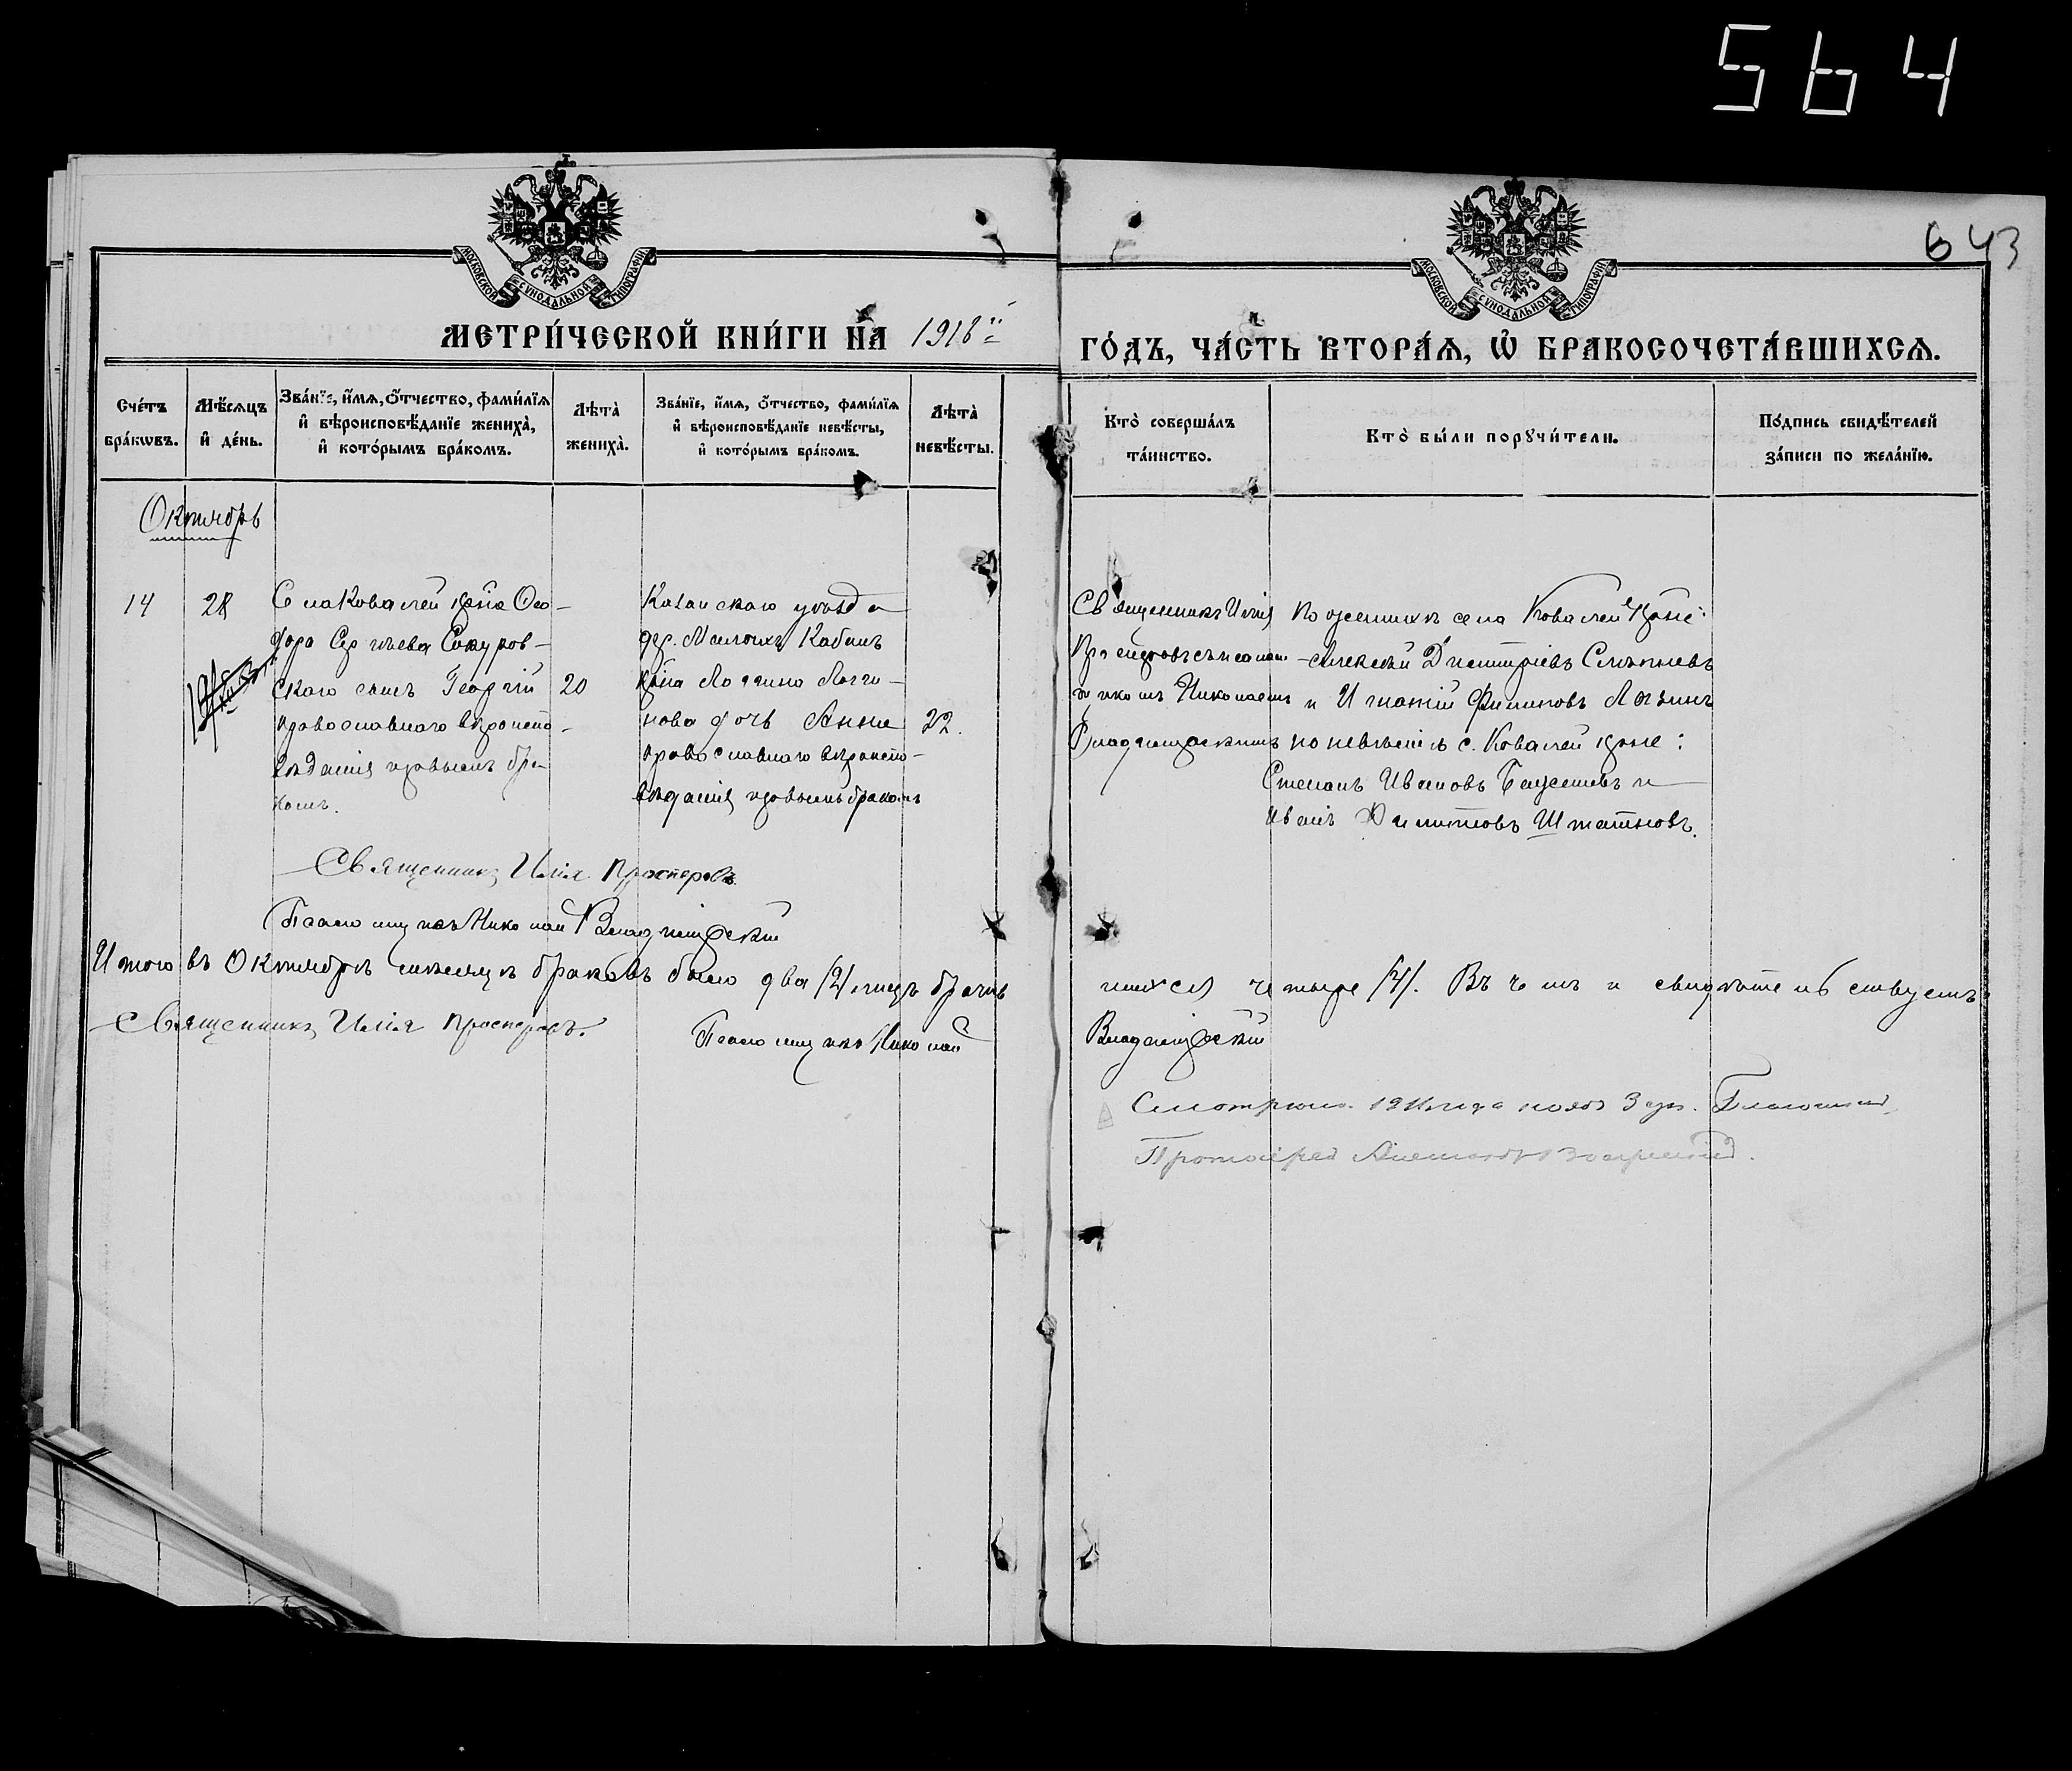 564
643
МОСКОВСКОЙ СУНОДАЛЬНОЙ ТИПОГРАФІИ
МОСКОВСКОЙ СУНОДАЛЬНОЙ ТИПОГРАФІИ
МЕТРИ́ЧЕСКОЙ КНИ́ГИ НА 1918й
ГО́ДЪ, ЧА́СТЬ ВТОРА́Я, Ѡ БРАКОСОЧЕТА́ВШИХСЯ.
Сче́тъ бра́кѡвъ.
Мѣ́сяцъ и де́нь.
Зва́нїе, и́мя, о́тчество, фами́лїя и вѣроисповѣ́данїе жениха̀, и кото́рымъ бра́комъ.
Лѣта̀ жениха̀.
Зва́нїе, и́мя, о́тчество, фами́лїя и вѣроисповѣ́данїе невѣ́сты, и кото́рымъ бра́комъ.
Лѣта̀ невѣ́сты.
Кто̀ соверша́лъ та́инство.
Кто̀ бы́ли порꙋчи́тели.
По́дпись свидѣ́телей за́писи по жела́нїю.
Октябрь
14
28
Села Ковалей крⷭ҇на Ѳео-
дора Сергѣева Сокуров-
скаго сынъ Георгій
православнаго вѣроиспо-
вѣданія первымъ бра-
комъ.
20
Казанскаго уѣзда
дер. Малыхъ Кабанъ
крⷭ҇на Логгина Логги-
нова дочь Анна
православнаго вѣроиспо-
вѣданія первымъ бракомъ
22.
Священникъ Илія
Просперовъ съ псалом-
щикомъ Николаемъ
Владимірскимъ
По женихѣ села Ковалей крⷭ҇не:
Алексѣй Димитріевъ
и Игнатій Филиповъ
по невѣстѣ с. Ковалей крⷭ҇не:
Степанъ Ивановъ и
Иванъ
Священникъ Илія Просперовъ.
Псаломщикъ Николай Владимірскій
Итого въ Октябрѣ мѣсяцѣ браковъ было два /2/, лицъ брачив-
шихся четыре /4/. Въ чемъ и свидѣтельствуемъ:
Священникъ Илія Просперовъ.
Псаломщикъ Николай
Владимірскій
Смотрѣно. года нояб. 3 дн.
Протоіерей